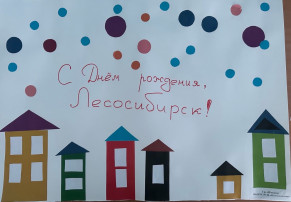 С Днём рождения,
Лесосибирск!